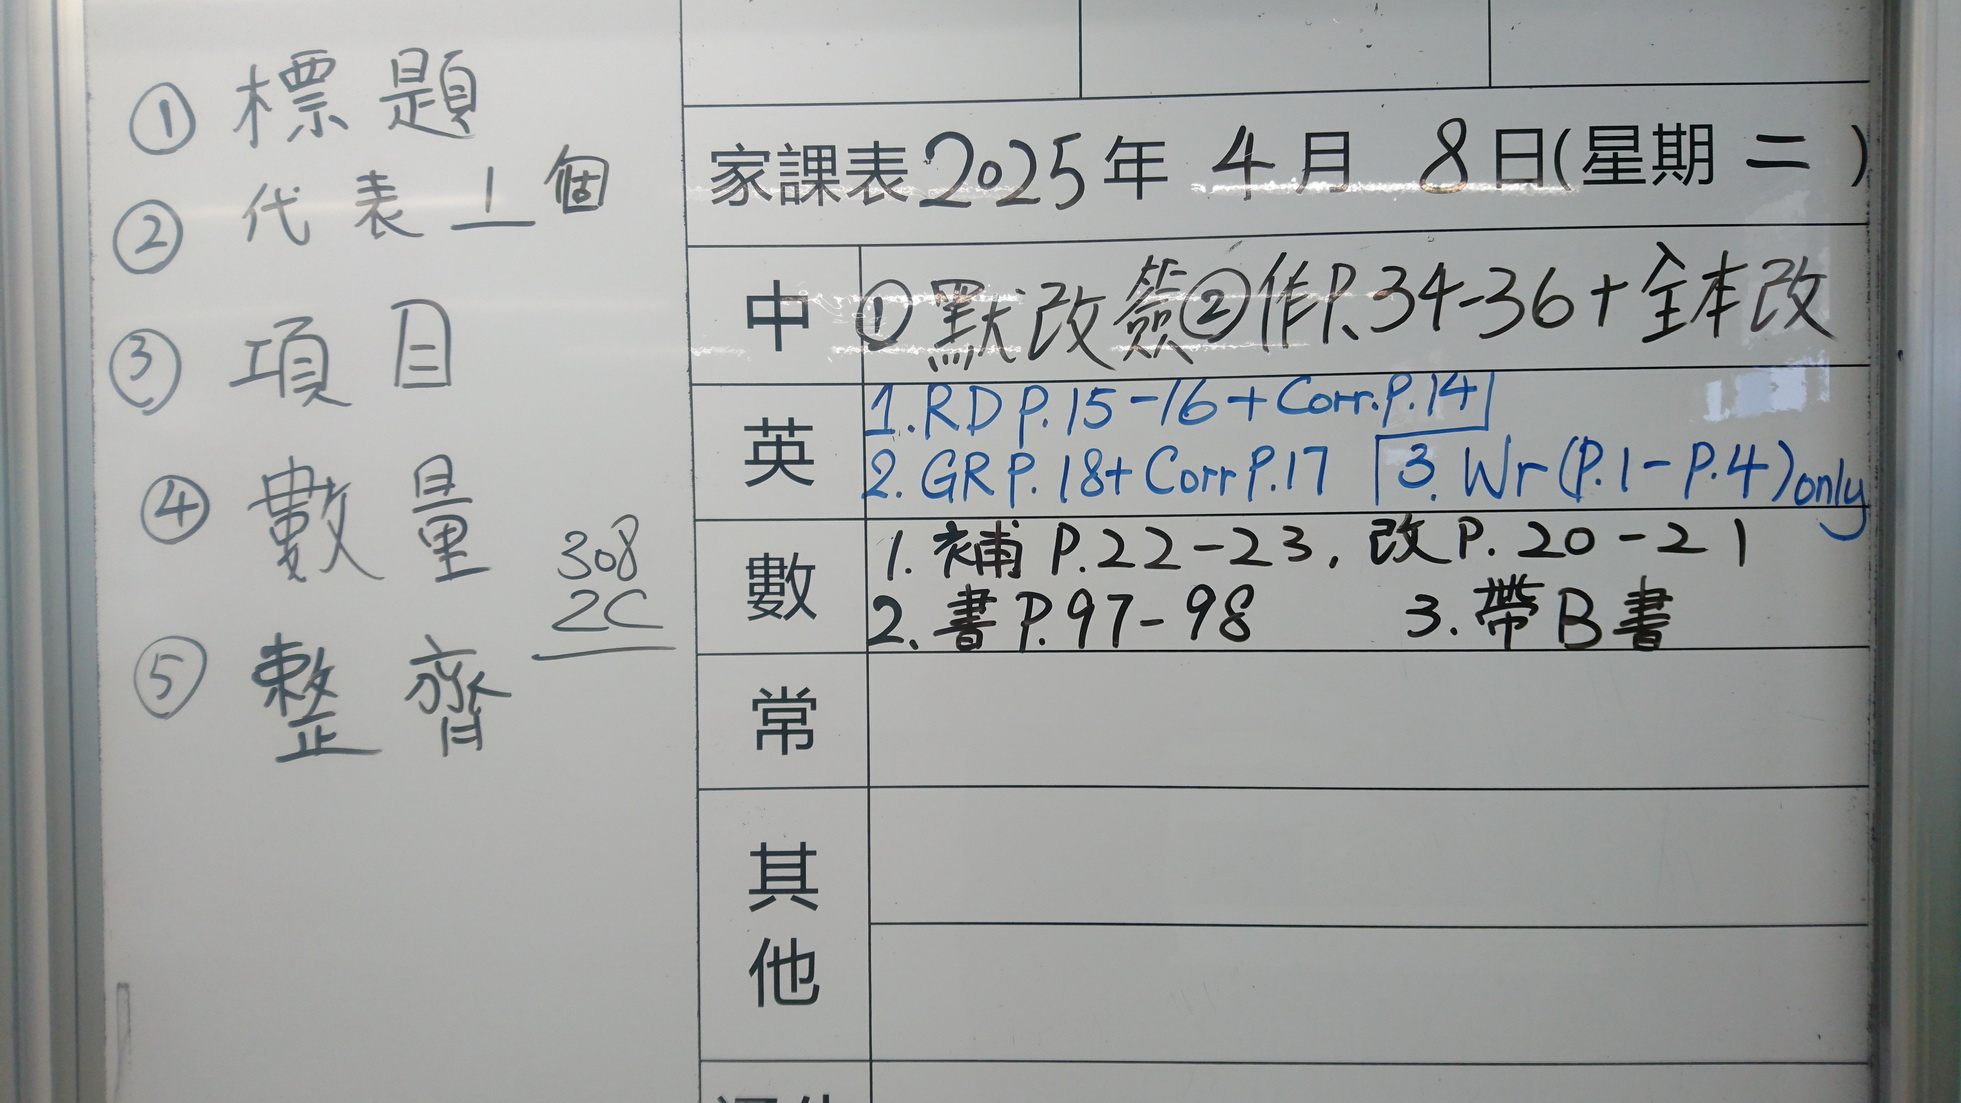 ① 標題
② 代表 1 個
③ 項目
④ 數量
308
2C
⑤ 整齊
家課表2025年 4月 8日(星期 二 )
中 ①默改簽②作P.34-36+全本改
英 1.RD P.15-16+Corr.P.14
2. GR P.18+Corr P.17 3. Wr (P.1-P.4) only
數 1. 補 P.22-23, 改 P.20-21
2. 書 P.97-98 3. 帶B書
常
其他